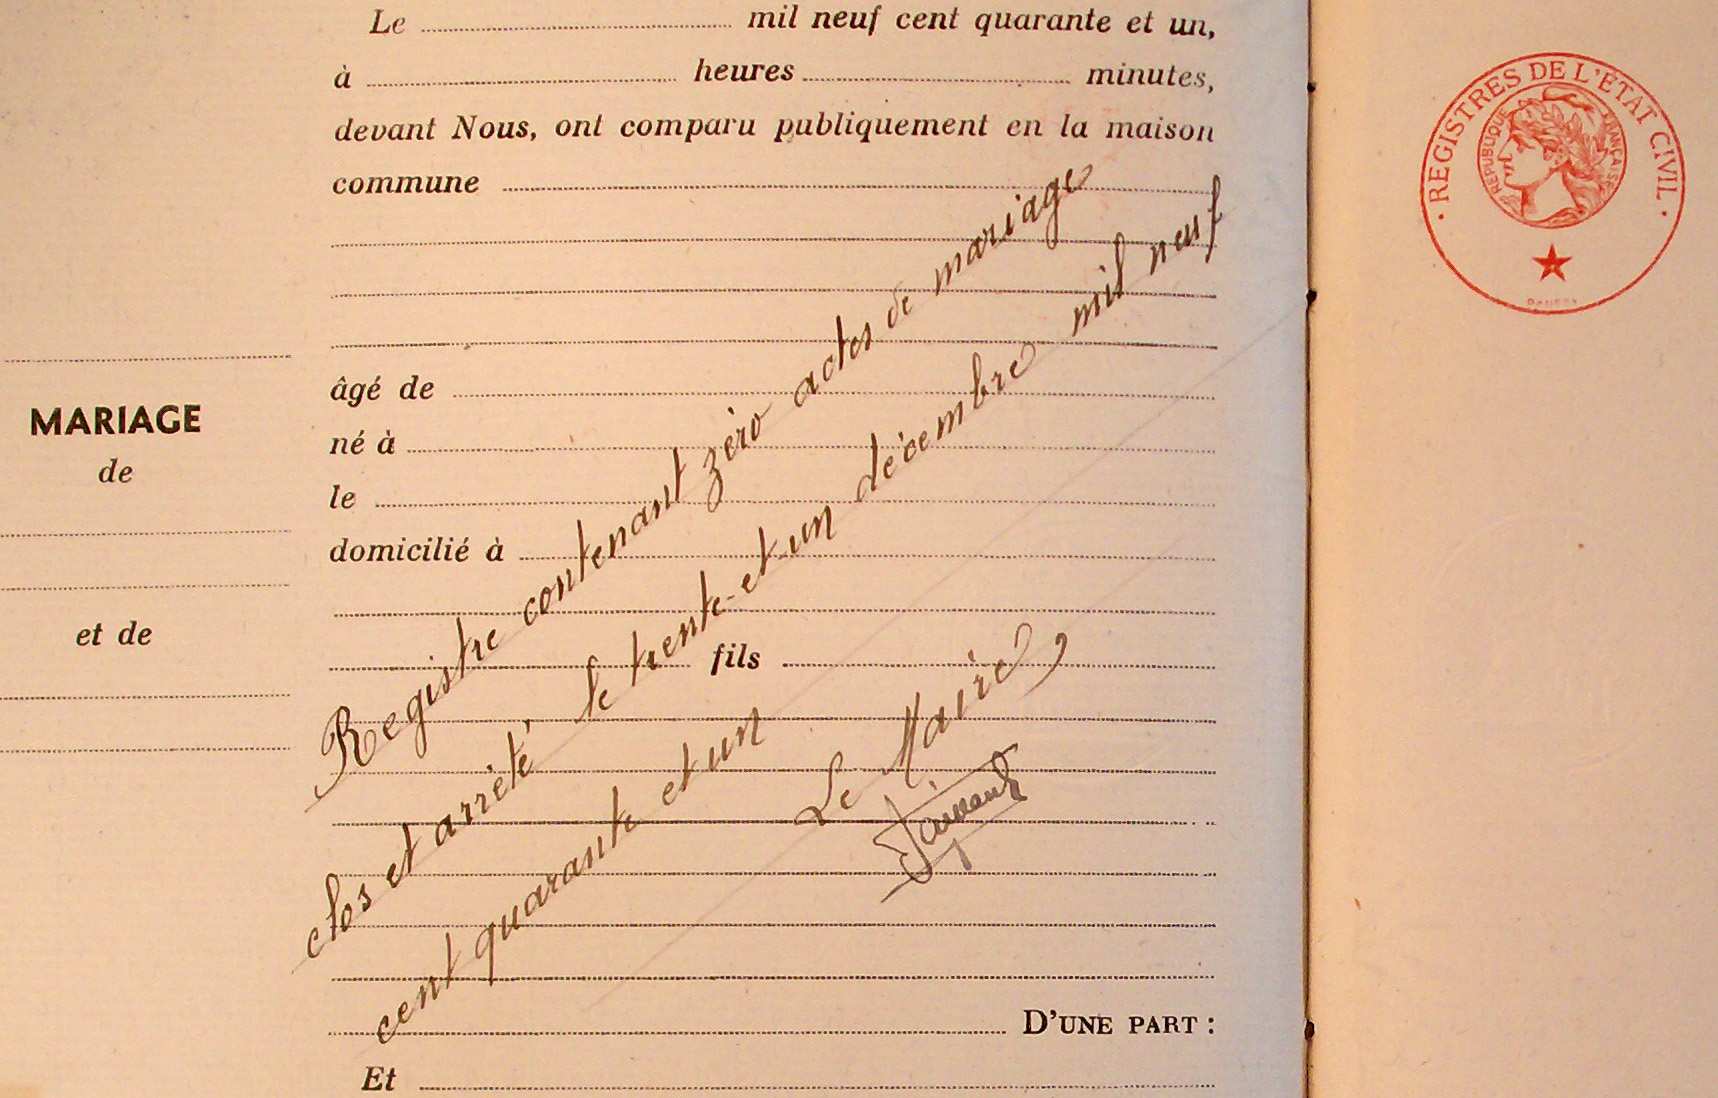 Le mil neuf cent quarante et un,
à heures minutes,
devant Nous, ont comparu publiquement en la maison
commune
âgé de
né à
le
domicilié à
fils
D'UNE PART :
Et
MARIAGE
de
et de
Registre contenant zéro actes de mariage
clos et arrêté le trente-et-un décembre mil neuf
cent quarante et un
Le Maire,
· REGISTRES DE L'ÉTAT CIVIL ·
RÉPUBLIQUE FRANÇAISE